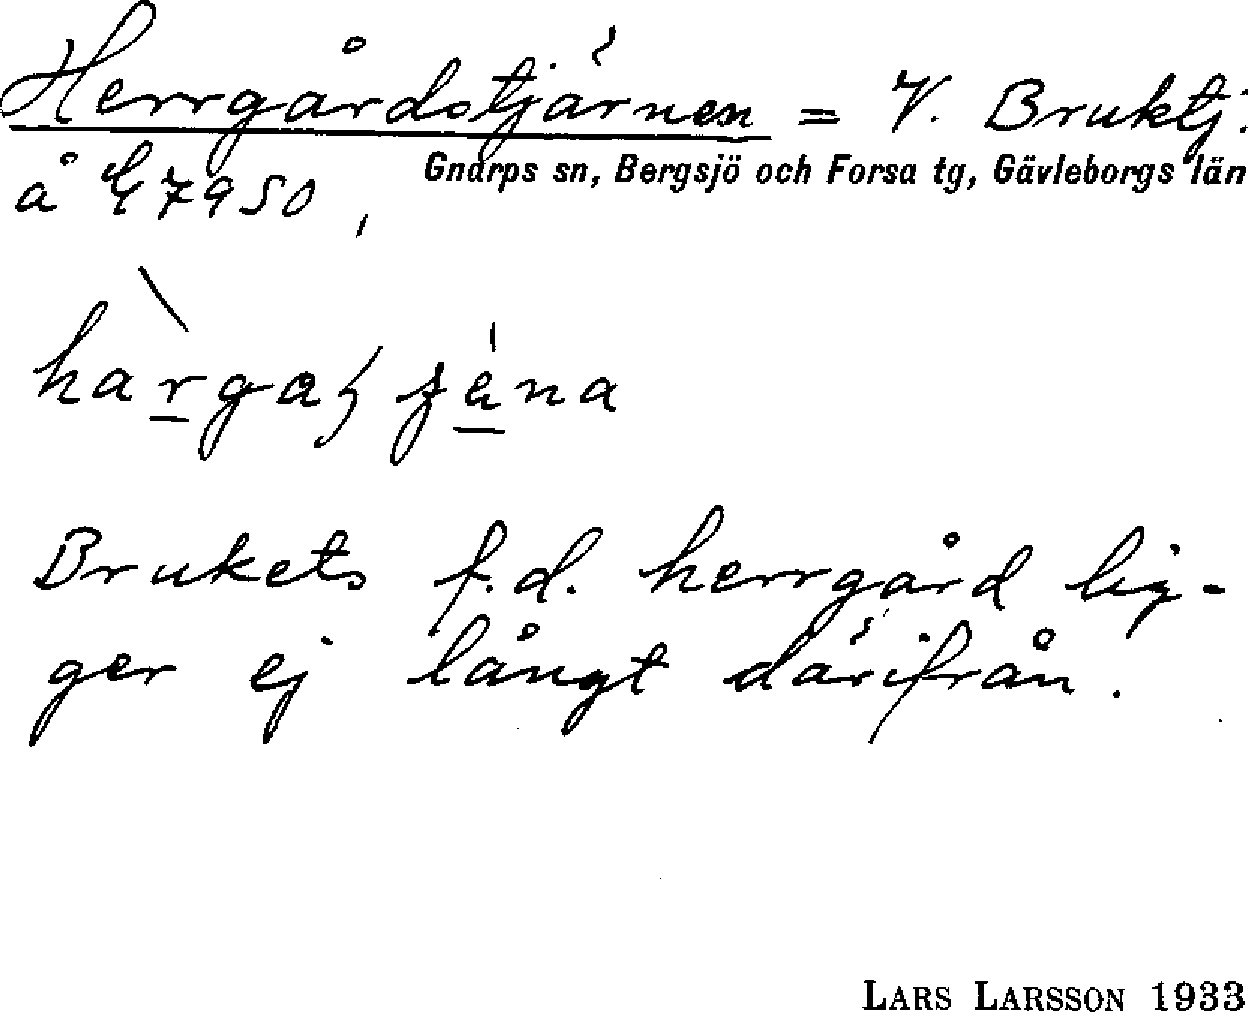 Herrgårdstjärnen = V. Bruktj.
Gnarps sn, Bergsjö och Forsa tg, Gävleborgs län
å G 7950,
Brukets f.d. herrgård lig-
ger ej långt därifrån.
LARS LARSSON 1933